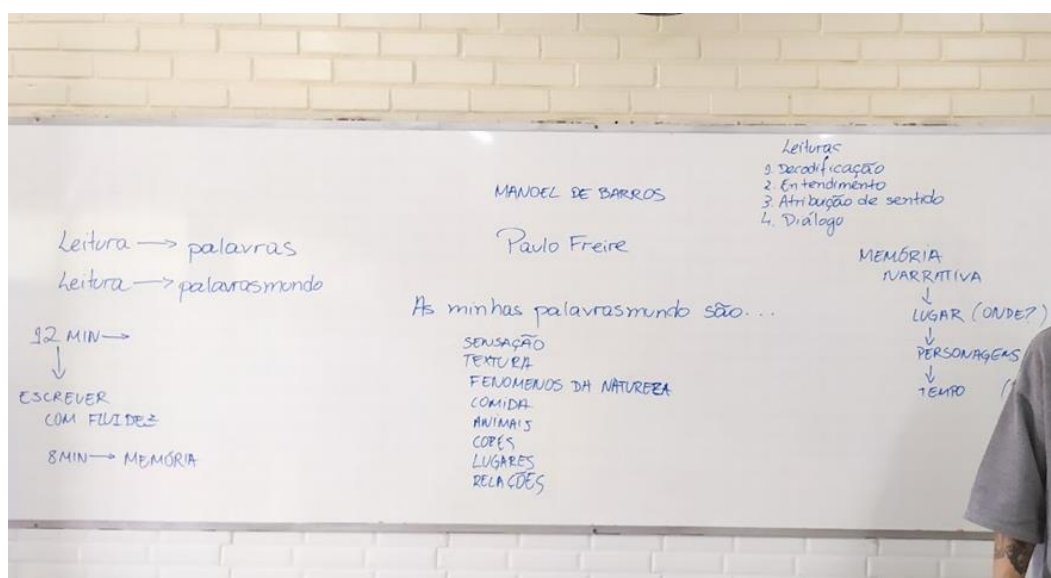 Leitura → palavras
Leitura → palavrasmundo
12 MIN →
↓
ESCREVER
COM FLUIDEZ
8MIN → MEMÓRIA
MANOEL DE BARROS
Paulo Freire
As minhas palavrasmundo são...
SENSAÇÃO
TEXTURA
FENOMENOS DA NATUREZA
COMIDA
ANIMAIS
CORES
LUGARES
RELAÇÕES
Leituras
1. Decodificação
2. Entendimento
3. Atribuição de sentido
4. Diálogo
MEMÓRIA
NARRATIVA
↓
LUGAR (ONDE?)
↓
PERSONAGENS
↓
TEMPO